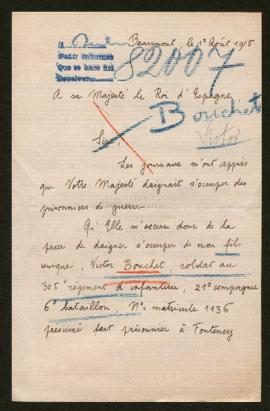 Beaumont, le 1er Août 1915
Pedir informes
Que se hace así
Devolver
82007
A sa Majesté le Roi d'Espagne
Bouchet
Victor
Sire,
Les journaux m'ont appris
que Votre Majesté daignait s'occuper des
prisonniers de guerre.
Qu'Elle m'excuse donc de la
prier de daigner s'occuper de mon fils
unique, Victor Bouchet, soldat au
305e régiment d'infanterie, 21e compagnie
6e bataillon, No matricule 1136
présumé fait prisonnier à Fontenoy